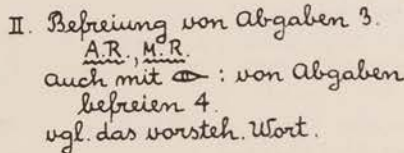 II. Befreiung von Abgaben 3.
A.R., M.R.
auch mit : von Abgaben
befreien 4.
vgl. das vorsteh. Wort.